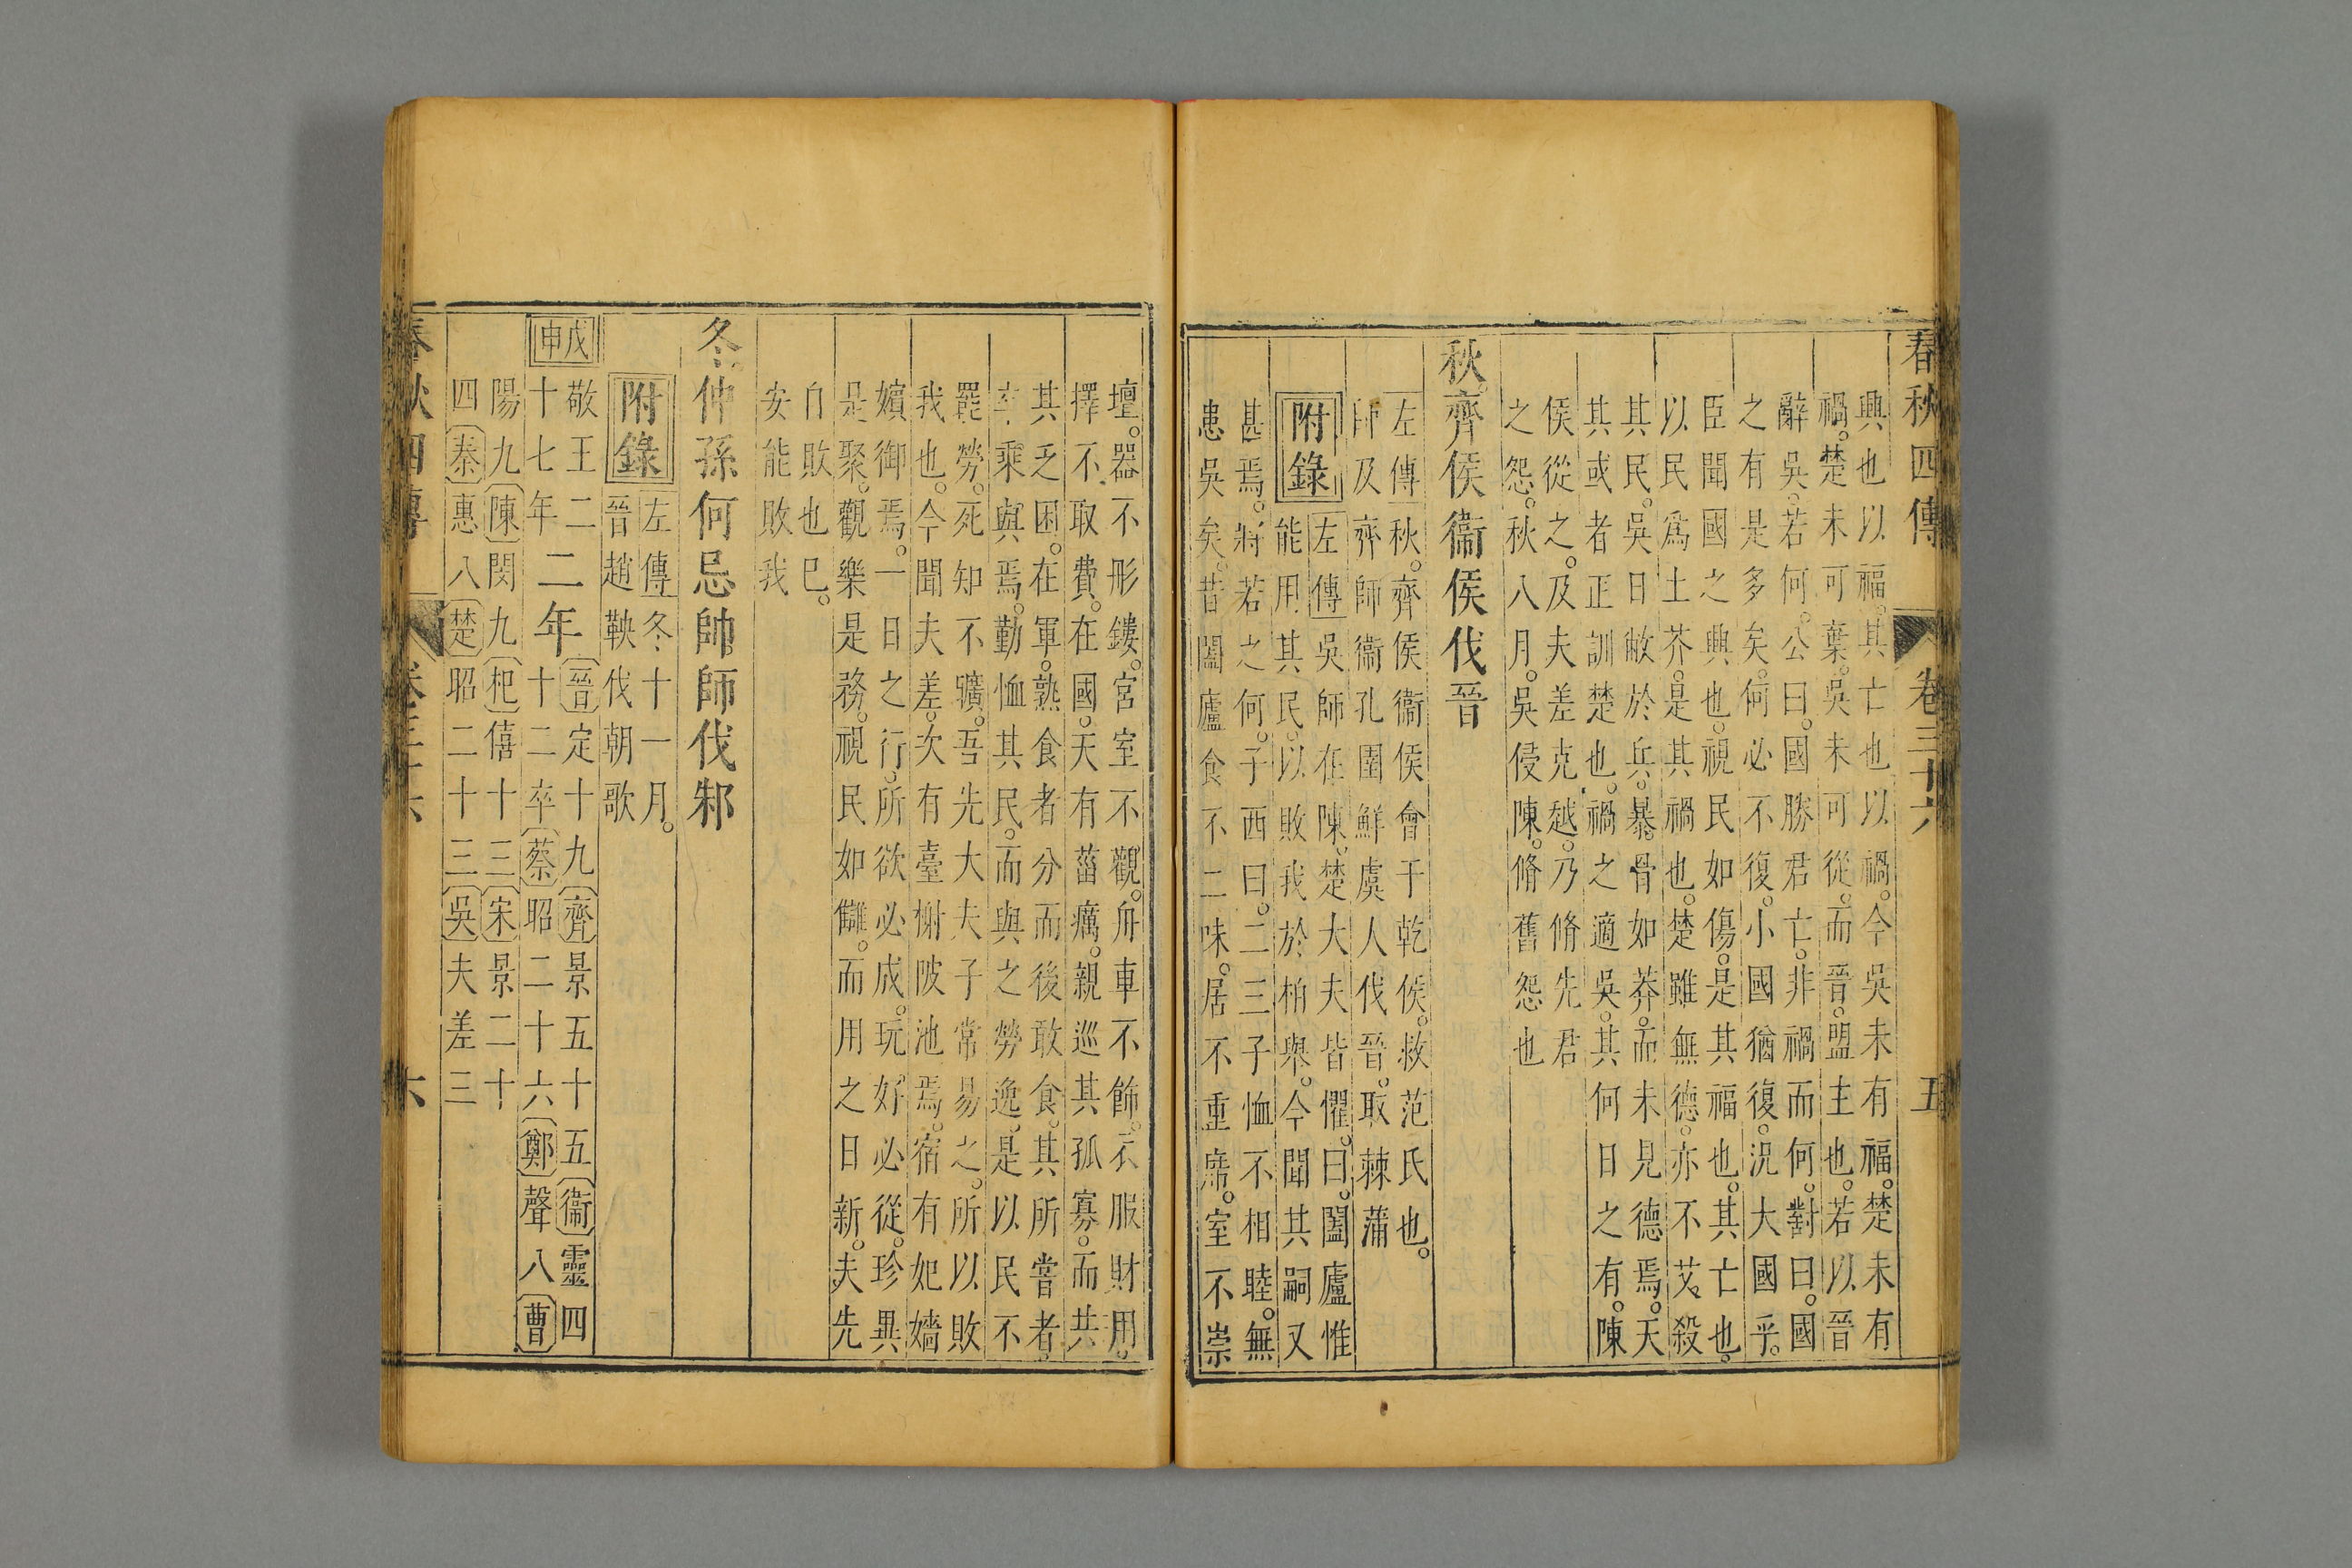 春秋四傳 卷三十六 五
興也以福。其亡也以禍。今吳未有福。楚未有
禍。楚未可葉。吳未可從。而晉。盟主也。若以晉
辭吳。若何。公曰。國勝君亡。非禍而何。對曰。國
之有是多矣。何必不復。小國猶復。況大國乎。
臣聞國之興也。視民如傷。是其福也。其亡也。
以民爲土芥。是其禍也。楚雖無德。亦不艾殺
其民。吳日敝於兵。暴骨如莽。而未見德焉。天
其或者正訓楚也。禍之適吳。其何日之有。陳
侯從之。及夫差克越。乃脩先君
之怨。秋八月。吳侵陳。脩舊怨也
秋。齊侯衞侯伐晉
左傳秋。齊侯衞侯會于乾侯。救范氏也。
師及齊師衞孔圉鮮虞人伐晉。取棘蒲
附錄
左傳吳師在陳。楚大夫皆懼。曰。闔廬惟
能用其民。以敗我於柏舉。今聞其嗣又
甚焉。將若之何。子西曰。二三子恤不相睦。無
患吳矣。昔闔廬食不二味。居不重席。室不崇
壇。器不彤鏤。宮室不觀。舟車不飾。衣服財用。
擇不取費。在國。天有菑癘。親巡其孤寡。而共
其乏困。在軍。熟食者分而後敢食。其所嘗者。
卒乘與焉。勤恤其民。而與之勞逸。是以民不
罷勞。死知不曠。吾先大夫子常易之。所以敗
我也。今聞夫差。次有臺榭陂池焉。宿有妃嬙
嬪御焉。一日之行。所欲必成。玩好必從。珍異
是聚。觀樂是務。視民如讎。而用之日新。夫先
自敗也已。
安能敗我
冬。仲孫何忌帥師伐邾
附錄
左傳冬。十一月。
晉趙鞅伐朝歌
戊申
敬王二
十七年
二年
晉定十九齊景五十五衞靈四
十二卒蔡昭二十六鄭聲八曹
陽九陳閔九杞僖十三宋景二十
四秦惠八楚昭二十三吳夫差三
春秋四傳 卷三十六 六